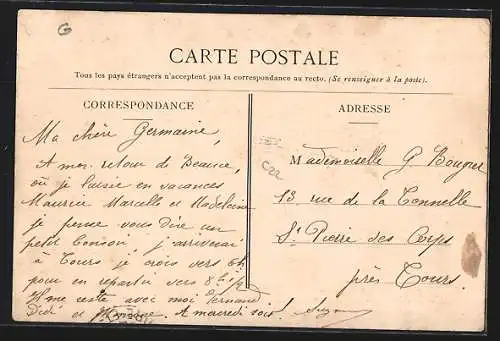 G
CARTE POSTALE
Tous les pays étrangers n'acceptent pas la correspondance au recto. (Se renseigner à la poste).
CORRESPONDANCE
Ma chère Germaine,
A mon retour de Beauce,
où je laisse en vacances
Maurice Marcelle et Madeleine
je pense vous dire un
petit bonsoir j'arriverai
à Tours je crois vers 6h
pour en repartir vers 8h 1/2
Il me reste avec moi Fernand
Dédé et A mercredi soir
ADRESSE
C22
Mademoiselle G
13 rue de la Tonnelle
St Pierre des Corps
près Tours.